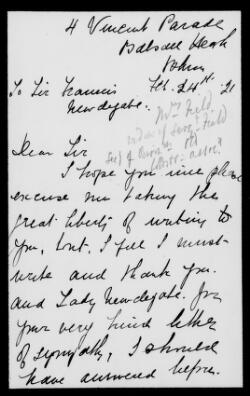 4 Vincent Parade
Balsall Heath
B'ham
To Sir Francis Feb. 24th 21
Newdegate.
Mrs Field
widow of Serg. Field
Dear Sir
I hope you will please
excuse me taking the
great liberty of writing to
you, but, I feel I must
write and thank you.
and Lady Newdegate. for
your very kind letter
of sympathy, I should
have answered before.